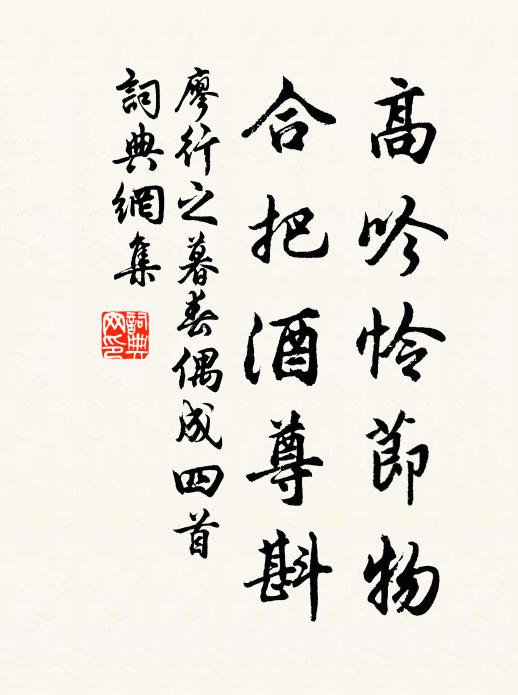 高吟怜節物
合把酒尊斟
廖行之暮春偶成四首
詞典網集
詞典
网印